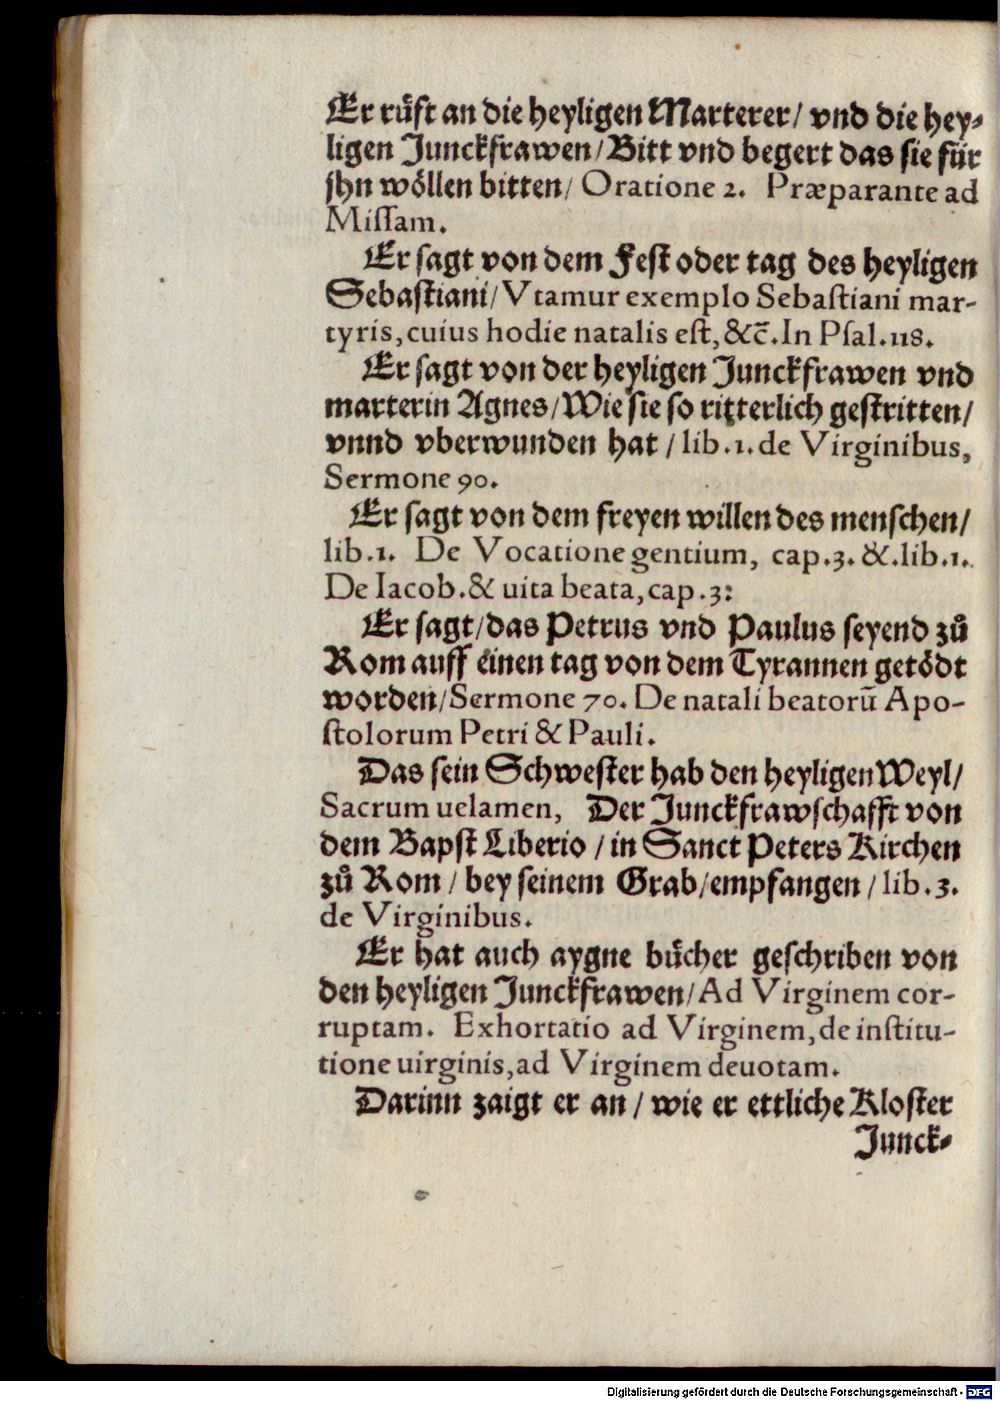 Er růfft an die heyligen Marterer/ vnd die hey-
ligen Junckfrawen/ Bitt vnd begert das sie für
jhn wöllen bitten/ Oratione 2. Præparante ad
Miſſam.
Er sagt von dem Fest oder tag des heyligen
Sebastiani/ Vtamur exemplo Sebaſtiani mar-
tyris, cuius hodie natalis eſt, &c̄. In Pſal. 118.
Er sagt von der heyligen Junckfrawen vnd
marterin Agnes/ Wie sie so ritterlich gestritten/
vnnd vberwunden hat / lib. 1. de Virginibus,
Sermone 90.
Er sagt von dem freyen willen des menschen/
lib. 1. De Vocatione gentium, cap. 3. &. lib. 1.
De Iacob. & uita beata, cap. 3:
Er sagt/ das Petrus vnd Paulus seyend zů
Rom auff einen tag von dem Tyrannen getödt
worden/ Sermone 70. De natali beatorū Apo-
ſtolorum Petri & Pauli.
Das sein Schwester hab den heyligen Weyl/
Sacrum uelamen, Der Junckfrawschafft von
dem Bapst Liberio / in Sanct Peters Kirchen
zů Rom / bey seinem Grab/ empfangen / lib. 3.
de Virginibus.
Er hat auch aygne bücher geschriben von
den heyligen Junckfrawen/ Ad Virginem cor-
ruptam. Exhortatio ad Virginem, de inſtitu-
tione uirginis, ad Virginem deuotam.
Darinn zaigt er an / wie er ettliche Kloster
Junck-
Digitalisierung gefördert durch die Deutsche Forschungsgemeinschaft - DFG